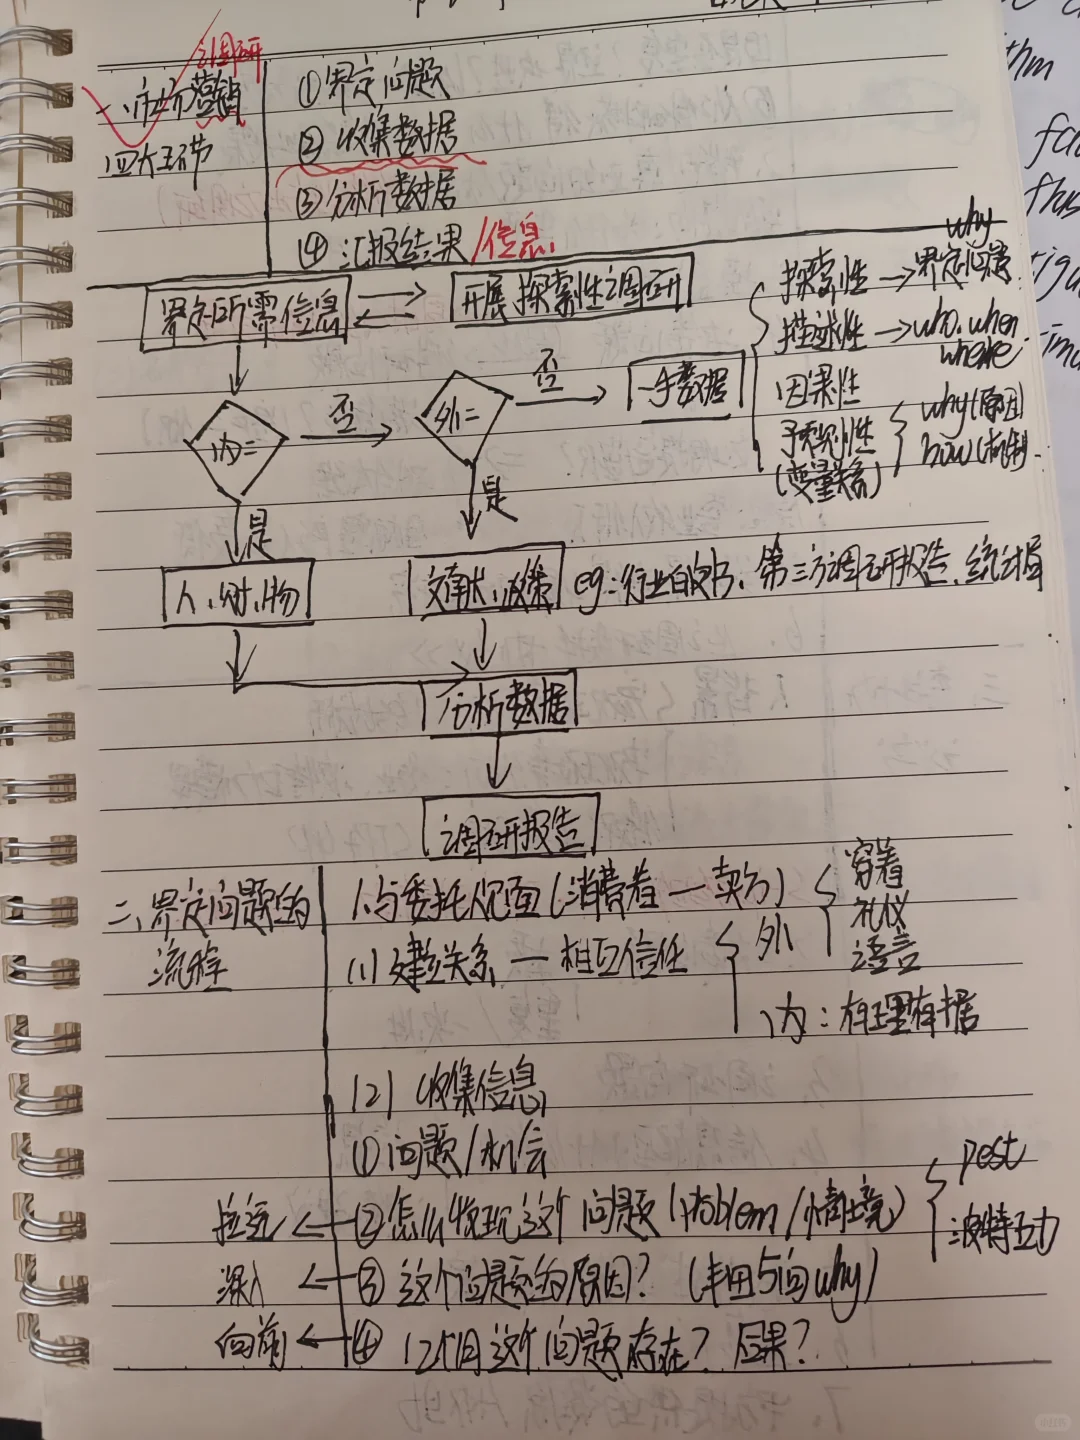 调研
一、市场营销
四大环节
① 界定问题
② 收集数据
③ 分析数据
④ 汇报结果/信息
界定所需信息
开展探索性调研
why
探索性→界定问题
描述性→who、when
where
因果性
预测性
(变量关系)
why(原因)
how(机制)
内=
否
外=
否
一手数据
是
是
人、财、物
文献、政策
eg:行业白皮书、第三方调研报告、统计局
分析数据
调研报告
二、界定问题的
流程
1.与委托人见面(消费者—卖方)
(1)建立关系—相互信任
外
穿着
礼仪
语言
内:有理有据
(2) 收集信息
①问题/机会
拉远 ②怎么发现这个问题(problem/情境)
pest
波特五力
深入 ③这个问题的原因?(丰田5问why)
向前 ④12个月这个问题存在?后果?